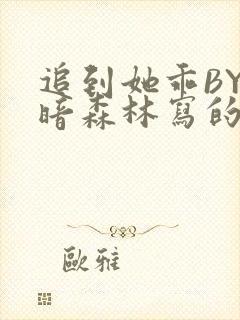 追到她乖BY
暗森林寫的
歐雅